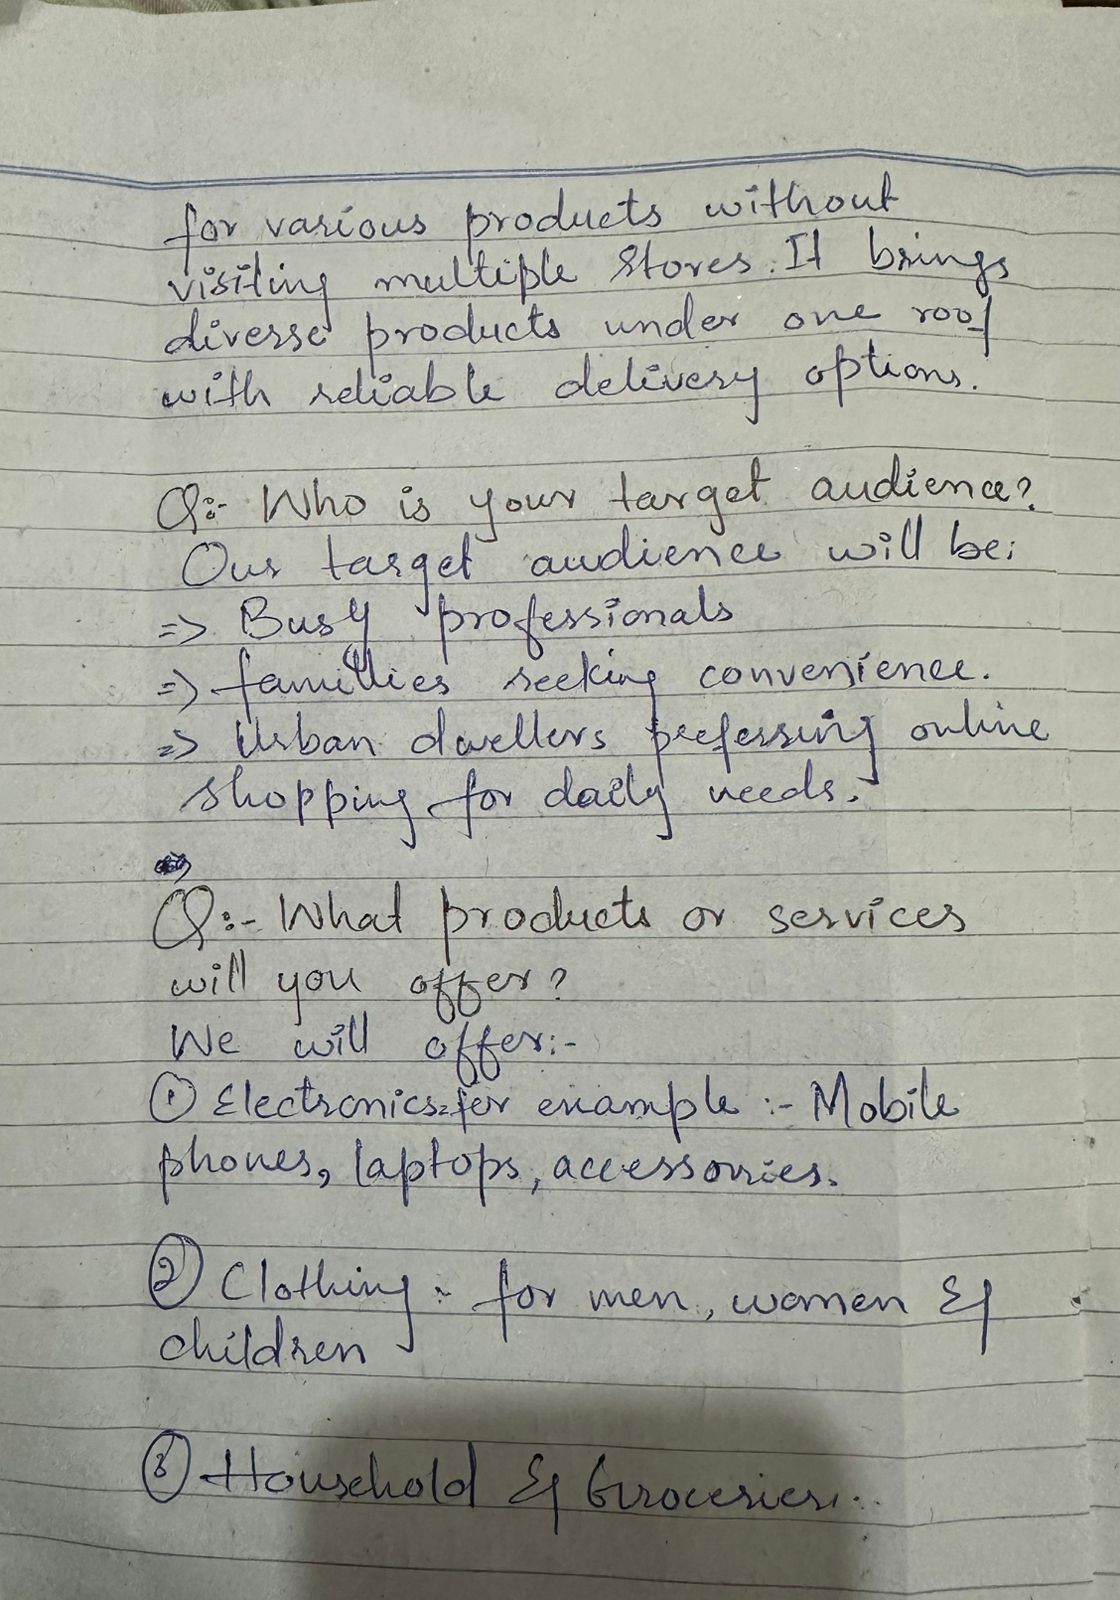 for various products without
visiting multiple stores. It brings
diverse products under one roof
with reliable delivery options.
Q:- Who is your target audience?
Our target audience will be:
=> Busy professionals
=> families seeking convenience.
=> Urban dwellers preferring online
shopping for daily needs.
Q:- What products or services
will you offer?
We will offer:-
① Electronics:for example :- Mobile
phones, laptops, accessories.
② Clothing :- for men, women &
children
③ Household & Groceries.